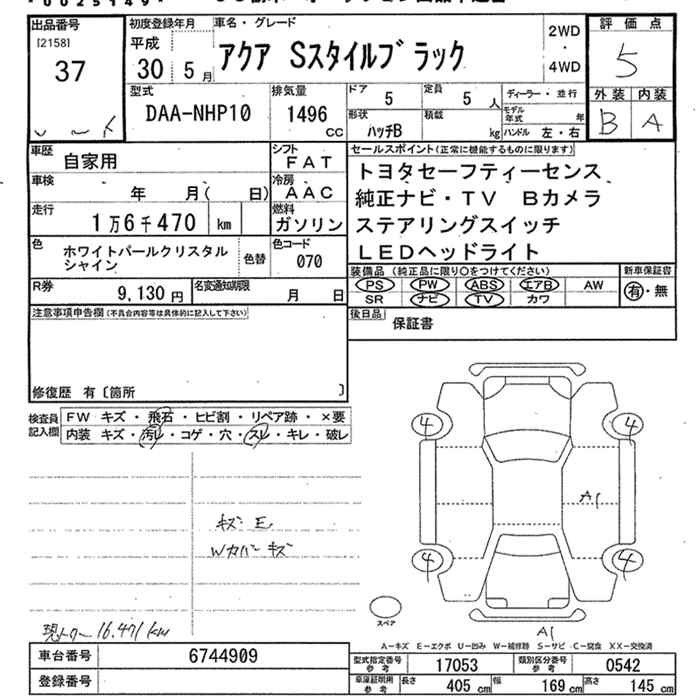 *00025149*
出品番号 初度登録年月 車名・グレード 2WD・4WD 評価点
[2158] 37
平成30 5月
アクア Sスタイルブラック
5
型式 排気量 ドア 定員 ディーラー・並行 外装 内装
DAA-NHP10 1496CC 5 5人 B A
形状 積載 モデル年式 年
ハッチB kg ハンドル 左・右
車歴 シフト セールスポイント(正常に機能するものに限ります)
自家用 FAT トヨタセーフティーセンス
車検 年 月( 日) 冷房 AAC 純正ナビ・TV Bカメラ
走行 1万6千470 km 燃料 ガソリン ステアリングスイッチ
LEDヘッドライト
色 ホワイトパールクリスタルシャイン 色替 色コード 070
装備品(純正品に限り○をつけてください) 新車保証書
PS PW ABS エアB AW 有・無
SR ナビ TV カワ
R券 9,130円 名変通知期限 月 日
注意事項申告欄(不具合内容等は具体的に記入して下さい) 後日品 保証書
修復歴 有〔箇所 〕
検査員記入欄 FW キズ・飛石・ヒビ割・リペア跡・×要
内装 キズ・汚レ・コゲ・穴・スレ・キレ・破レ
4 4
A1
キズ E
Wカバーキズ
4 4
スペア
現メーター16.471km
A1
A-キズ E-エクボ U-凹み W-補修跡 S-サビ C-腐食 XX-交換済
車台番号 6744909 型式指定番号参考 17053 類別区分番号参考 0542
登録番号 車庫証明用参考 長さ 405cm 幅 169cm 高さ 145cm